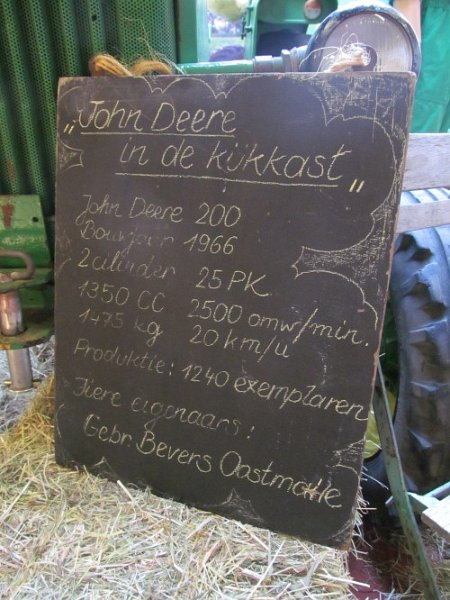 „John Deere
in de kijkkast"
John Deere 200
Bouwjaar 1966
2 cilinder 25 PK
1350 CC 2500 omw/min.
1475 kg 20 km/u
Produktie: 1240 exemplaren
Fiere eigenaars:
Gebr. Bevers Oostmalle